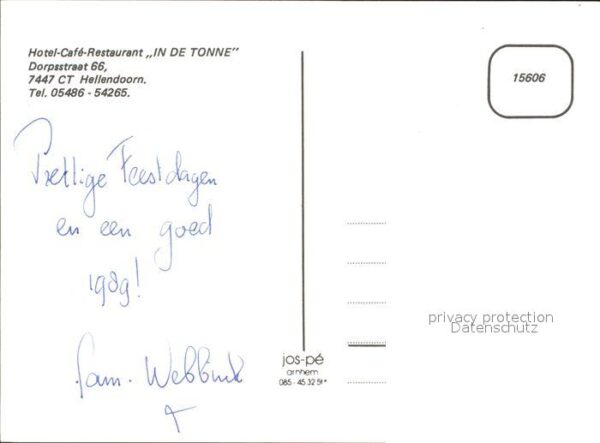 Hotel-Café-Restaurant „IN DE TONNE”
Dorpsstraat 66,
7447 CT Hellendoorn.
Tel. 05486 - 54265.
15606
Prettige Feestdagen
en een goed
1989!
fam. Webbink
privacy protection
Datenschutz
jos-pé
arnhem
085 - 45 32 51*